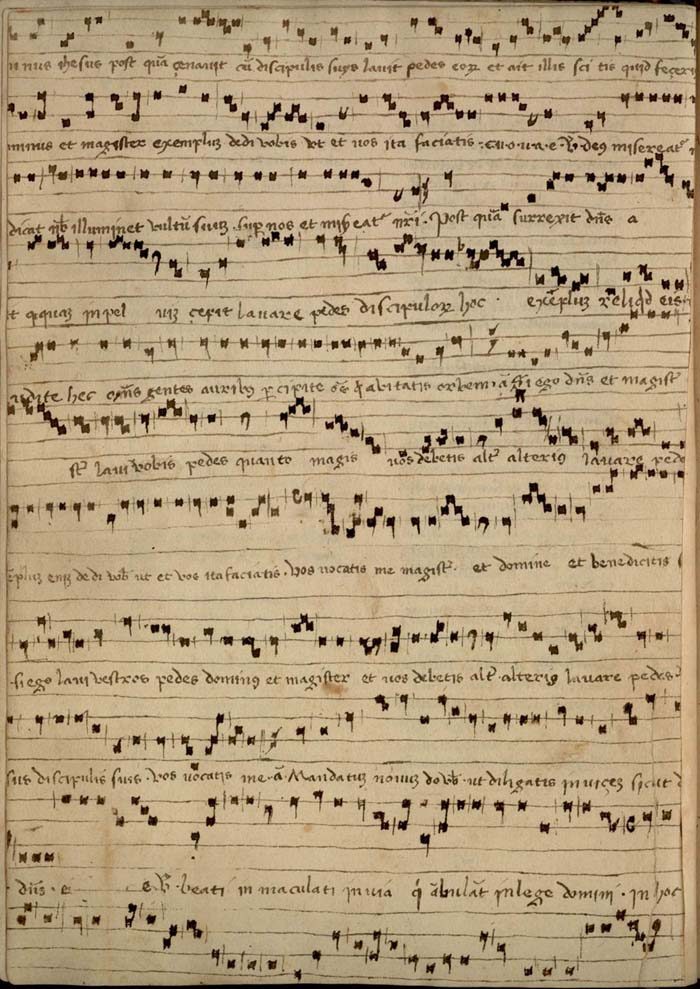 nus ihesus post quā cenauit cū discipulis suys lauit pedes eoꝝ et ait illis sci tis quid fecerī
minus et magister exempluz dedi vobis vt et uos ita faciatis : e.u.o.u.a.e ℣ deꝰ misereatᵉ
dicat nb̄ illuminet vultū suuz . sup nos et mis̄eatᵉ nr̄i . Post quā surrexit dn̄s a
et aquaz in pel uiz cepit lauare pedes discipuloꝝ hoc . exēpluz reliqd eis
audite hec oēs gentes auribꝰ ꝑcipite habitatis orbem . ā Si ego dn̄s et magist᷑
st᷑ laui vobis pedes quanto magis uos debetis alt᷑ alteriꝰ lauare pede
ēpluz eniz dedi vob̄ ut et vos ita faciatis . Vos uocatis me magist᷑ . et domine et benedicitis
. si ego laui vestros pedes dominꝰ et magister et uos debetis alt᷑ . alteriꝰ lauare pedes .
sus discipulis suis . Vos uocatis me . ā . Mandatuz nouuz do vob̄ . ut diligatis inuicez sicut
. dn̄s . e ℣ . beati in maculati in uia q̇ ābulāt in lege domini . in hoc